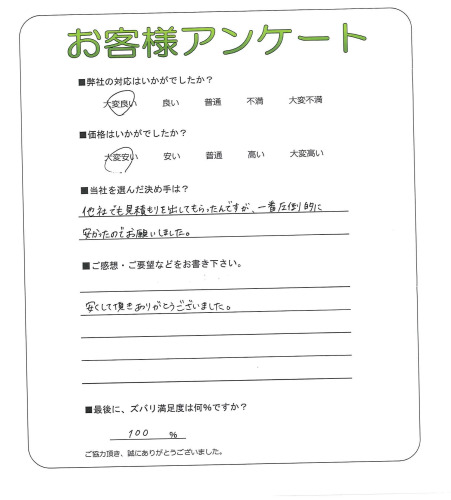 お客様アンケート
■弊社の対応はいかがでしたか？
大変良い 良い 普通 不満 大変不満
■価格はいかがでしたか？
大変安い 安い 普通 高い 大変高い
■当社を選んだ決め手は？
他社でも見積もりを出してもらったんですが、一番圧倒的に
安かったのでお願いしました。
■ご感想・ご要望などをお書き下さい。
安くして頂きありがとうございました。
■最後に、ズバリ満足度は何%ですか？
100 %
ご協力頂き、誠にありがとうございました。